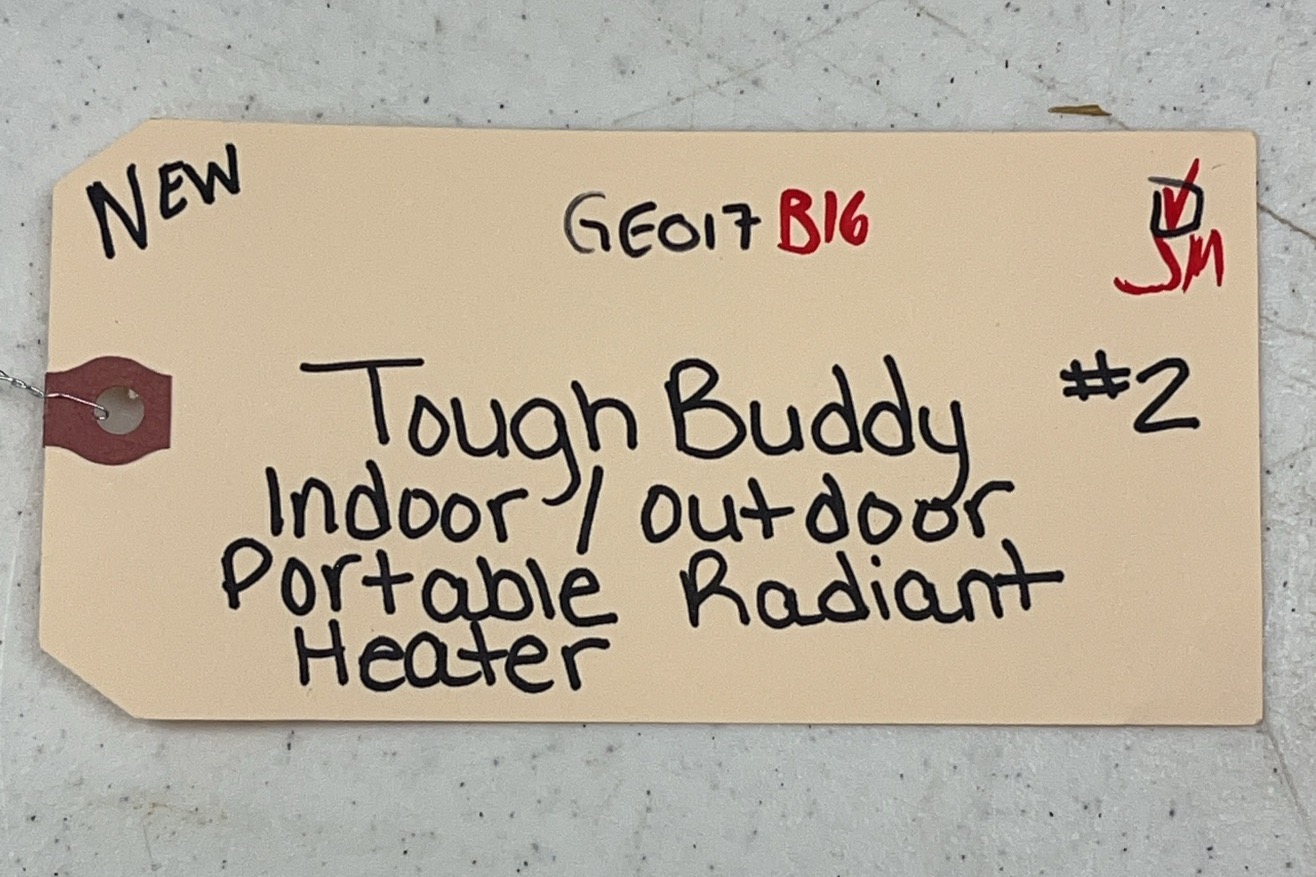 NEW
GE017 B16
JM
Tough Buddy #2
Indoor / outdoor
Portable Radiant
Heater